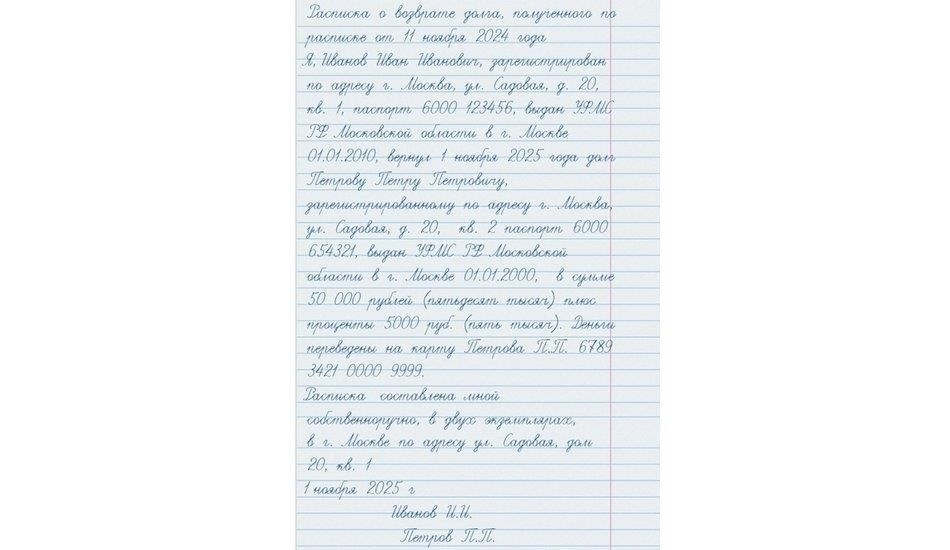 Расписка о возврате долга, полученного по
расписке от 11 ноября 2024 года
Я, Иванов Иван Иванович, зарегистрирован
по адресу г. Москва, ул. Садовая, д. 20,
кв. 1, паспорт 6000 123456, выдан УФМС
РФ Московской области в г. Москве
01.01.2010, вернул 1 ноября 2025 года долг
Петрову Петру Петровичу,
зарегистрированному по адресу г. Москва,
ул. Садовая, д. 20, кв. 2 паспорт 6000
654321, выдан УФМС РФ Московской
области в г. Москве 01.01.2000, в сумме
50 000 рублей (пятьдесят тысяч) плюс
проценты 5000 руб. (пять тысяч). Деньги
переведены на карту Петрова П.П. 6789
3421 0000 9999.
Расписка составлена мной
собственноручно, в двух экземплярах,
в г. Москве по адресу ул. Садовая, дом
20, кв. 1
1 ноября 2025 г
Иванов И.И.
Петров П.П.